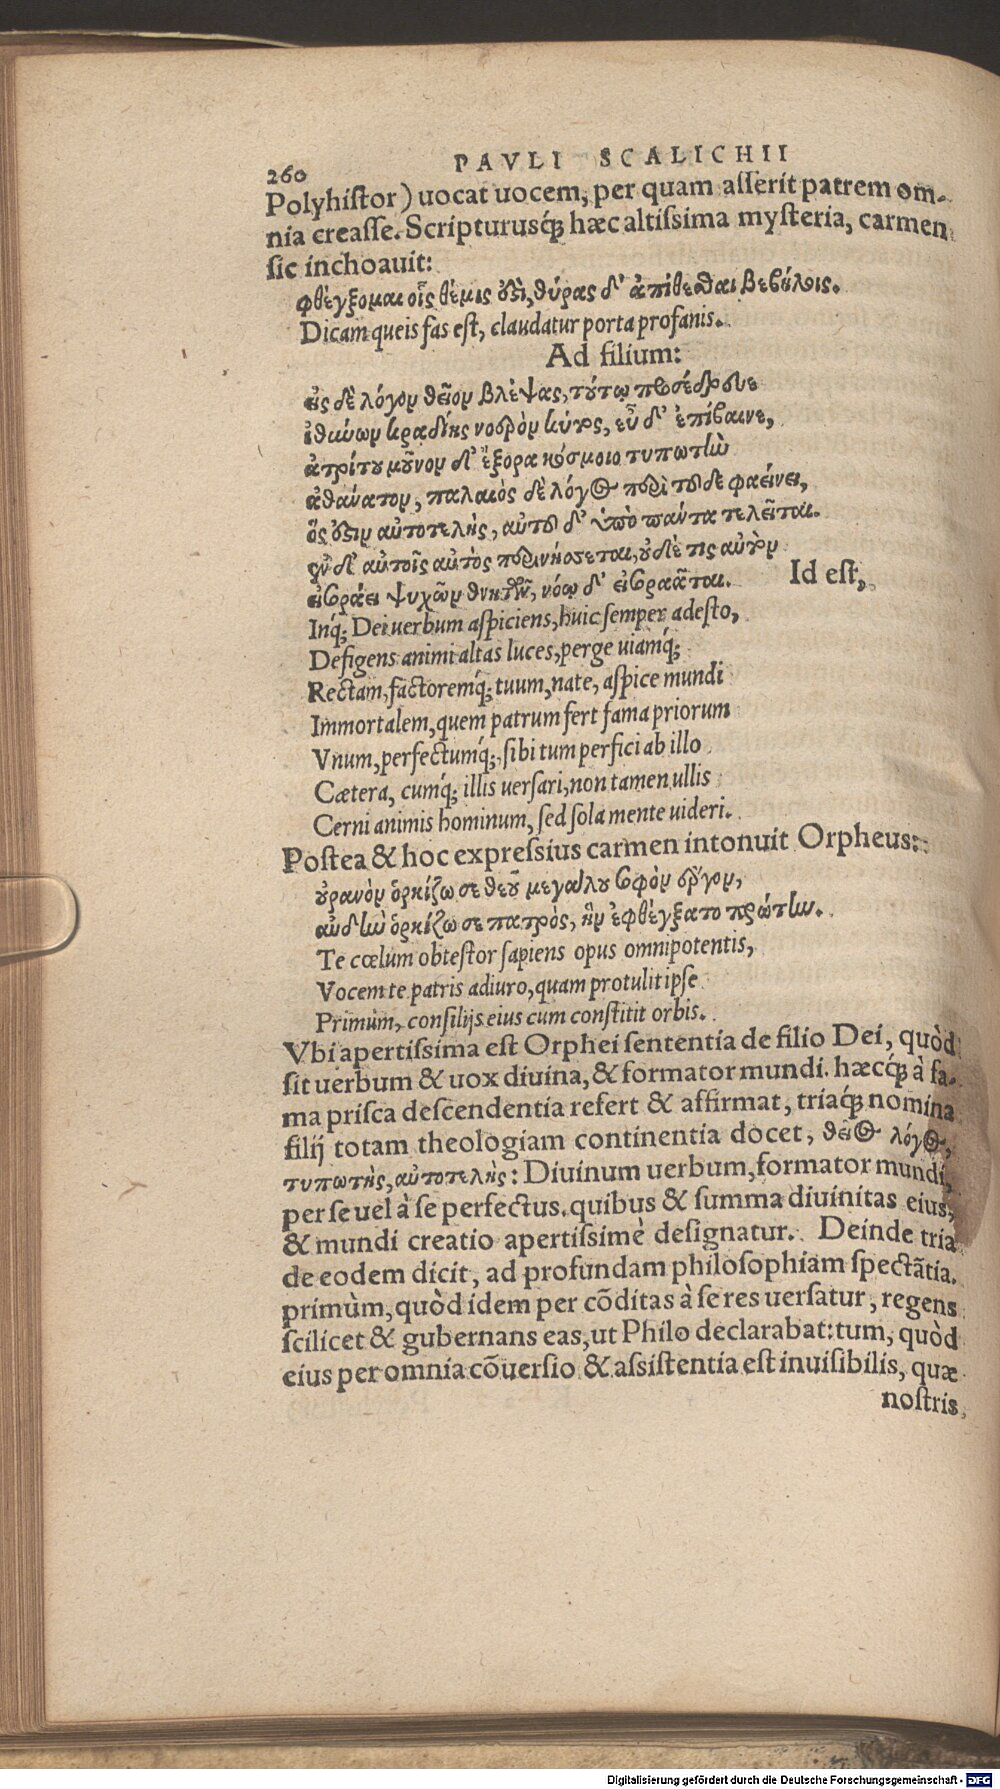 260 PAVLI SCALICHII
Polyhiſtor) uocat uocem, per quam aſſerit patrem om-
nia creaſſe. Scripturusq́ꝫ hæc altiſsima myſteria, carmen
ſic inchoauit:
φθέγξομαι οἷς θέμις ὅστι, θύρας δ' ἀπίθεσθαι βεβήλοις.
Dicam queis fas eſt, claudatur porta profanis.
Ad filium:
εἰς δὲ λόγον θεῖον βλέψας, τούτῳ προσέδρευε
ἰθκύων κραδίης νοερὸν κύτος, εὖ δ' ἐπίβαινε,
ἀτρίτου μοῦνον δ' ἔξορα κόσμοιο τυπωτὴν
ἀθάνατον, παλαιὸς δὲ λόγος περὶ τοῦδε φαείνει,
ὅς ὅστιν αὐτοτελής, αὐτοῦ δ' ὑπὸ πάντα τελεῖται.
ἐν δ' αὐτοῖς αὐτὸς περινήσεται, οὐδέ τις αὐτὸν
εἰσοράει ψυχῶν θνητῶν, νόῳ δ' εἰσοράαται. Id eſt,
Inq́; Dei uerbum aſpiciens, huic ſemper adeſto,
Defigens animi altas luces, perge uiamq́;
Rectam, factoremq́; tuum, nate, aſpice mundi
Immortalem, quem patrum fert fama priorum
Vnum, perfectumq́;, ſibi tum perfici ab illo
Cætera, cumq́; illis uerſari, non tamen ullis
Cerni animis hominum, ſed ſola mente uideri.
Poſtea & hoc expreſsius carmen intonuit Orpheus:
οὐρανὸν ὁρκίζω σε θεοῦ μεγάλου σοφὸν ἔργον,
αὐδὴν ὁρκίζω σε πατρὸς, ἣν ἐφθέγξατο πρώτην.
Te cœlum obteſtor ſapiens opus omnipotentis,
Vocem te patris adiuro, quam protulit ipſe
Primùm, conſilijs eius cum conſtitit orbis.
Vbi apertiſsima eſt Orphei ſententia de filio Dei, quòd
ſit uerbum & uox diuina, & formator mundi. hæcq́ꝫ à fa-
ma priſca deſcendentia refert & affirmat, triaq́ꝫ nomina
filij totam theologiam continentia docet, θεῖος λόγος,
τυπωτὴς, αὐτοτελής: Diuinum uerbum, formator mundi,
per ſe uel à ſe perfectus. quibus & ſumma diuinitas eius,
& mundi creatio apertiſsimè deſignatur. Deinde tria
de eodem dicit, ad profundam philoſophiam ſpectãtia.
primùm, quòd idem per cõditas à ſe res uerſatur, regens
ſcilicet & gubernans eas, ut Philo declarabat: tum, quòd
eius per omnia cõuerſio & aſsiſtentia eſt inuiſibilis, quæ
noſtris
Digitalisierung gefördert durch die Deutsche Forschungsgemeinschaft - DFG